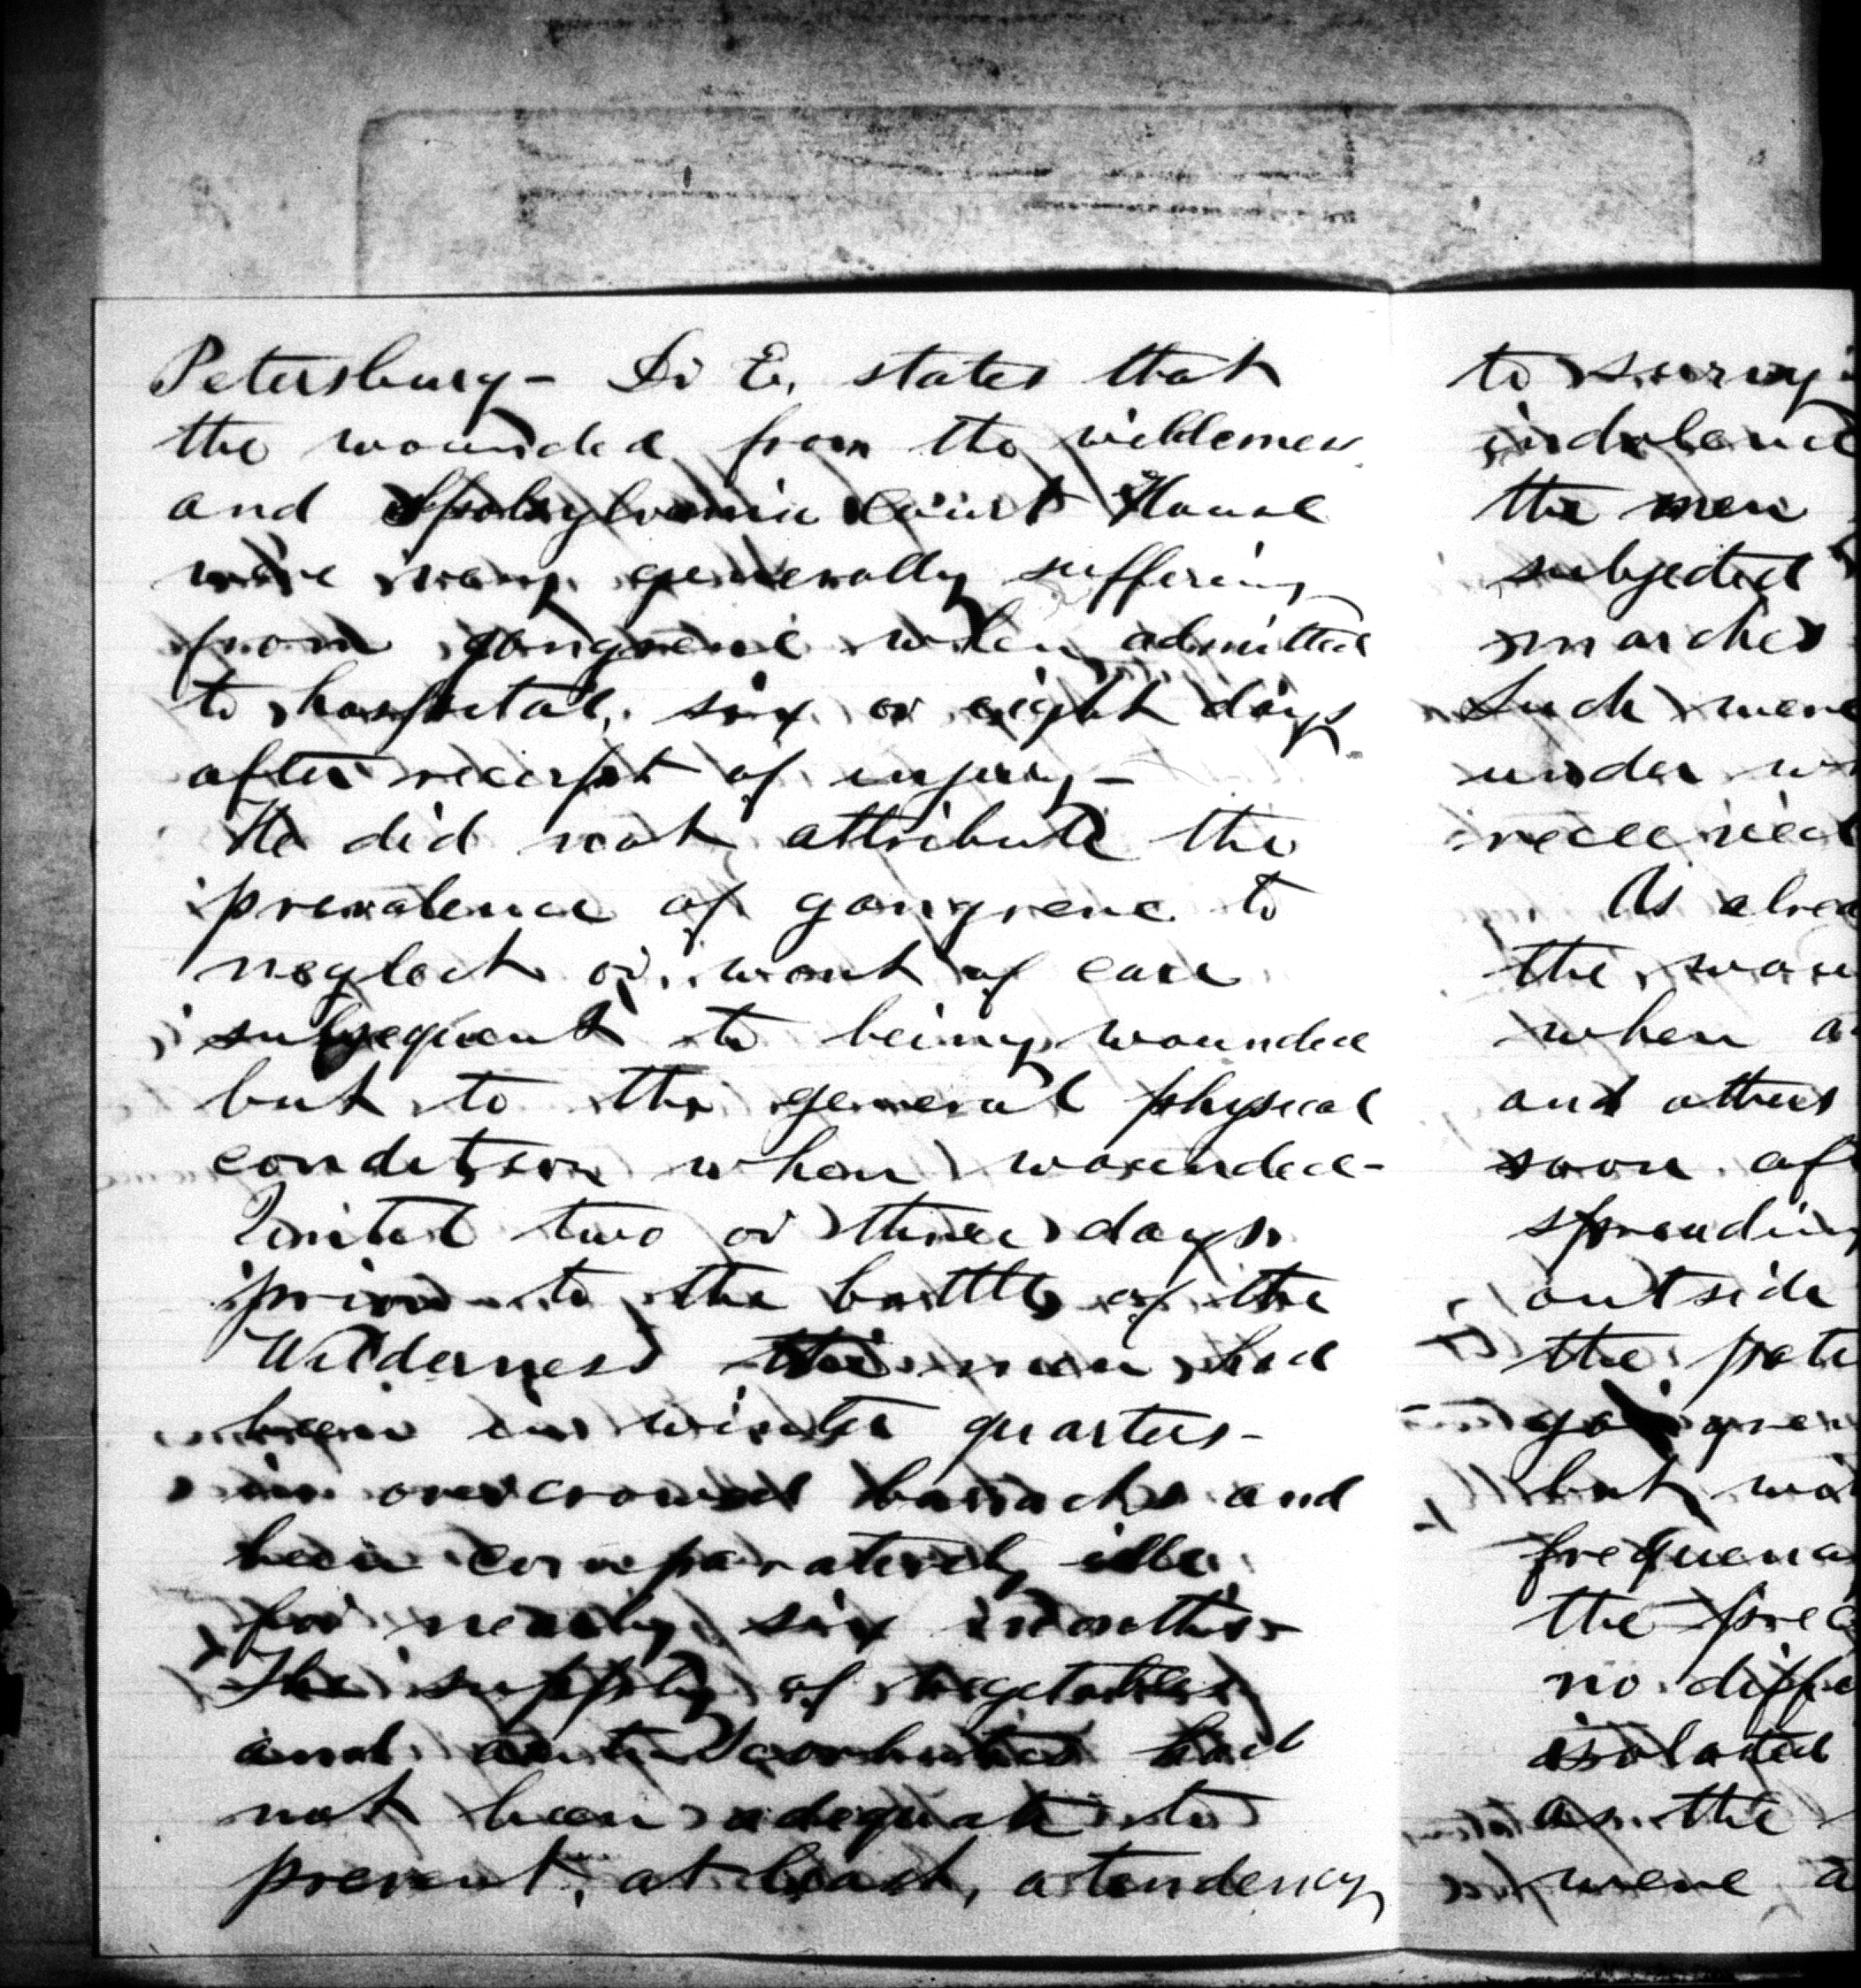 Petersburg - Dr E. states that
the wounded from the wilderness
and Spotsylvania Court House
were very generally suffering
from gangrene when admitted
to hospital, six or eight days
after receipt of injury -
He did not attribute the
prevalence of gangrene to
neglect or want of care
subsequent to being wounded
but to the general physical
condition when wounded -
Until two or three days
prior to the battle of the
Wilderness the men had
been in winter quarters -
in overcrowded barracks and
been comparatively idle
for nearly six months -
The supply of vegetables
and anti Scorbutics had
not been adequate to
prevent, at least, a tendency
to scurvy
indolence
the men
subjected
marches
Such were
under
received
As alrea
the wou
when a
and others
soon aft
spreading
outside
the pati
gangren
but wa
frequency
the prec
no diffe
isolated
as the
were a